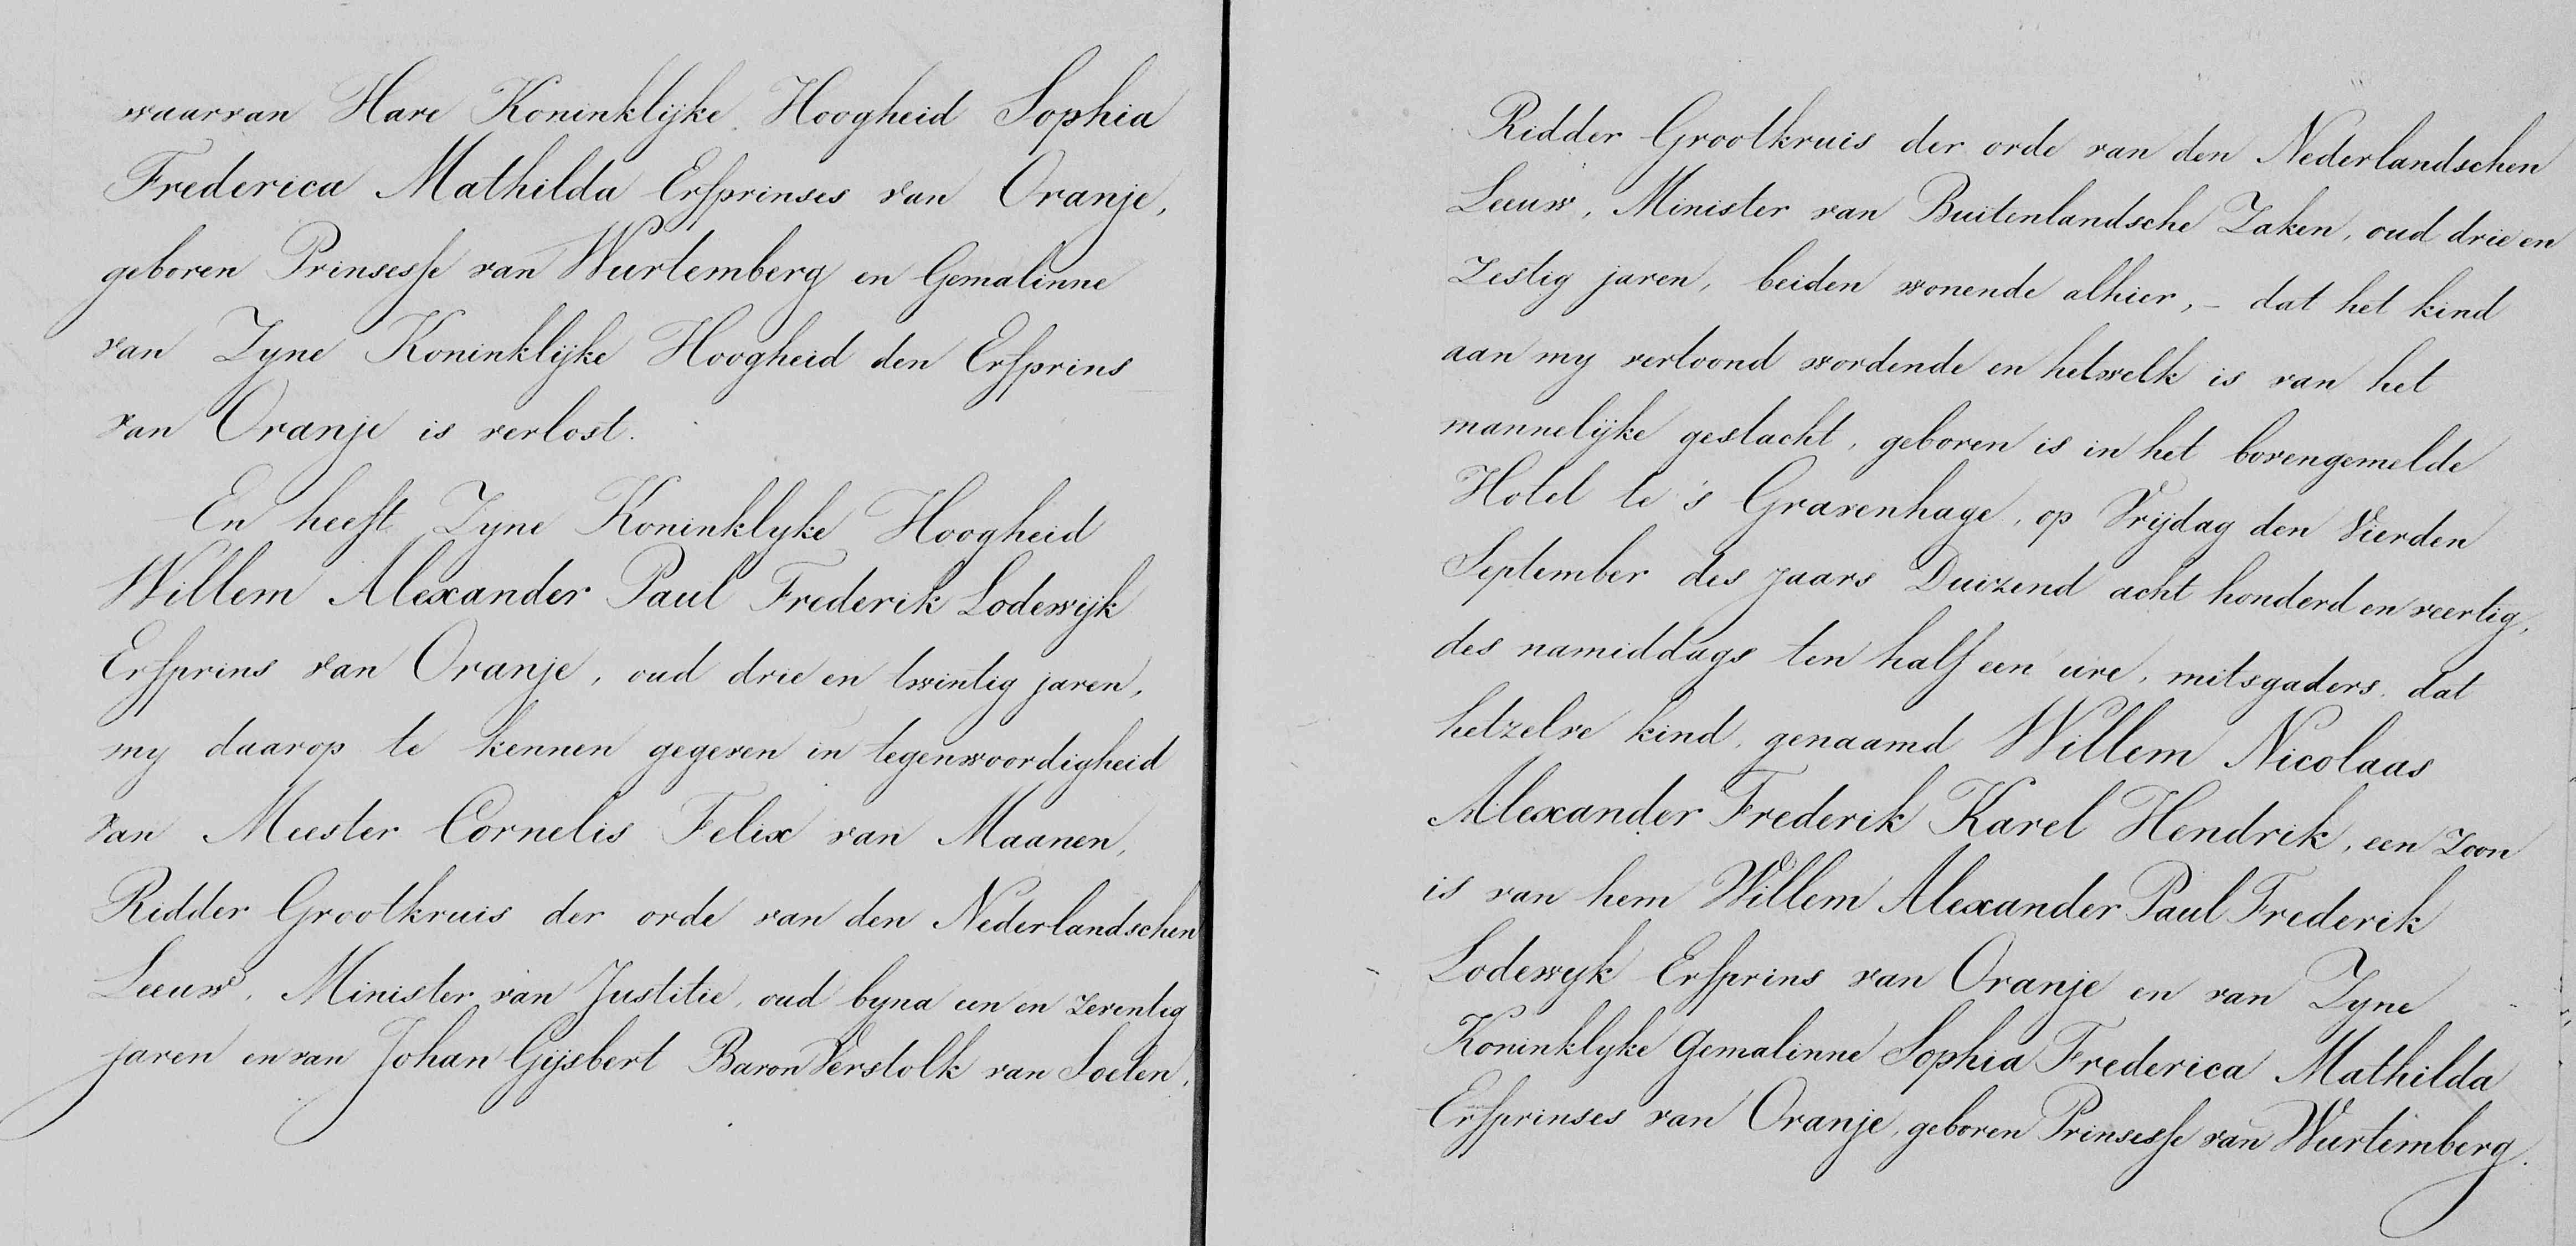 waarvan Hare Koninklijke Hoogheid Sophia
Frederica Mathilda Erfprinses van Oranje,
geboren Prinsesse van Wurtemberg en Gemalinne
van Zyne Koninklijke Hoogheid den Erfprins
van Oranje is verlost.
En heeft Zyne Koninklyke Hoogheid
Willem Alexander Paul Frederik Lodewijk
Erfprins van Oranje, oud drie en twintig jaren,
my daarop te kennen gegeven in tegenwoordigheid
van Meester Cornelis Felix van Maanen,
Ridder Grootkruis der orde van den Nederlandschen
Leeuw, Minister van Justitie, oud byna een en zeventig
jaren en van Johan Gijsbert Baron Verstolk van Soelen,
Ridder Grootkruis der orde van den Nederlandschen
Leeuw, Minister van Buitenlandsche Zaken, oud drie en
zestig jaren, beiden wonende alhier, – dat het kind
aan my vertoond wordende en hetwelk is van het
mannelijke geslacht, geboren is in het bovengemelde
Hotel te 's Gravenhage, op Vrijdag den Vierden
September des jaars Duizend acht honderd en veertig,
des namiddags ten half een ure, mitsgaders dat
hetzelve kind, genaamd Willem Nicolaas
Alexander Frederik Karel Hendrik, een zoon
is van hem Willem Alexander Paul Frederik
Lodewyk Erfprins van Oranje en van Zyne
Koninklyke Gemalinne Sophia Frederica Mathilda
Erfprinses van Oranje, geboren Prinsesse van Wurtemberg.